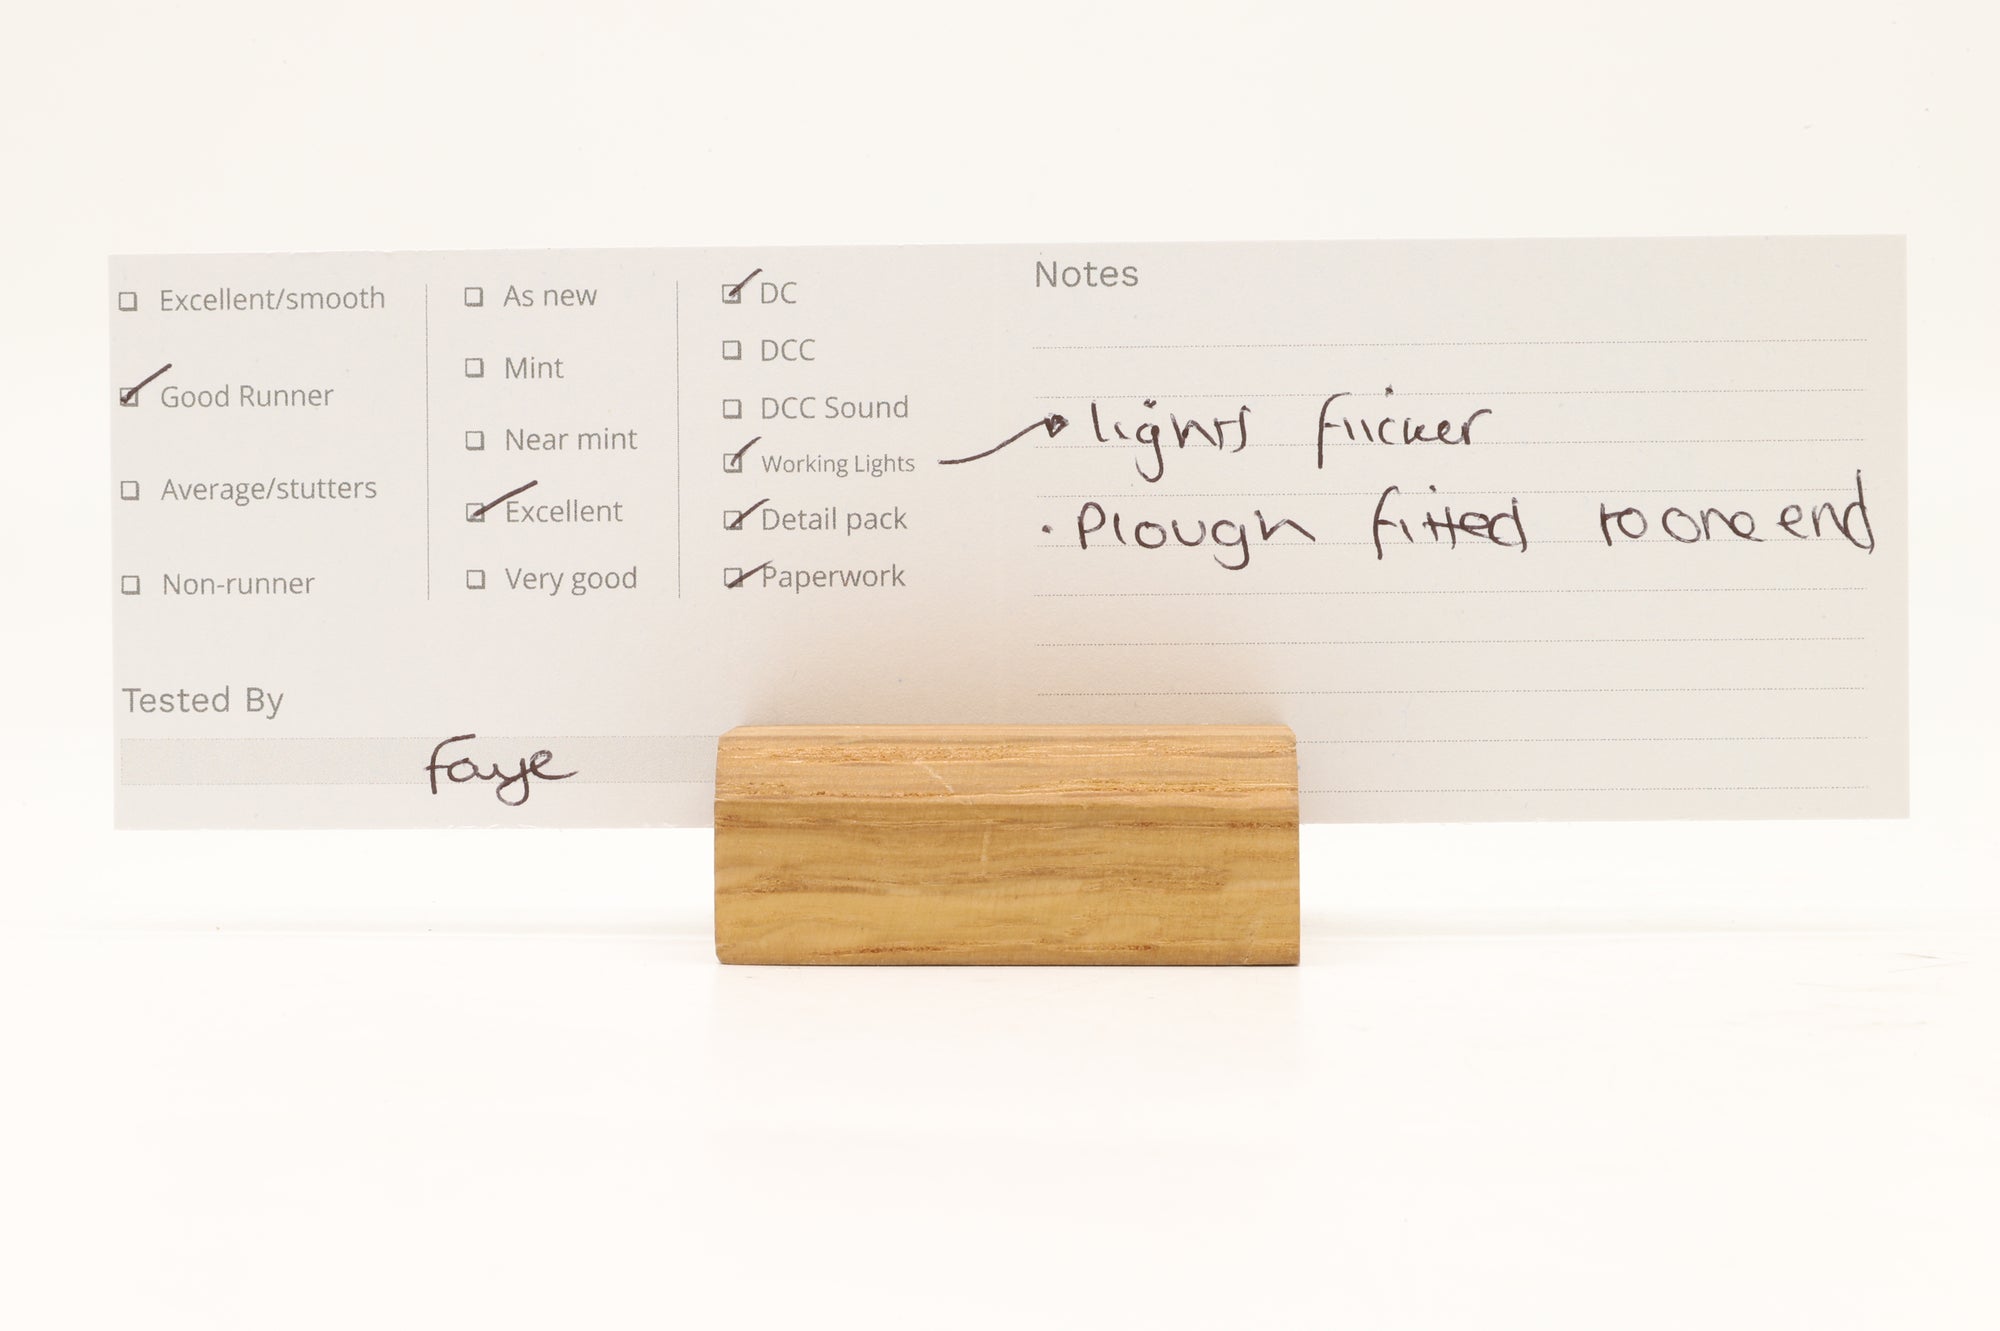 Excellent/smooth
Good Runner
Average/stutters
Non-runner
As new
Mint
Near mint
Excellent
Very good
DC
DCC
DCC Sound
Working Lights
Detail pack
Paperwork
Notes
lights flicker
• Plough fitted to one end
Tested By
Faye